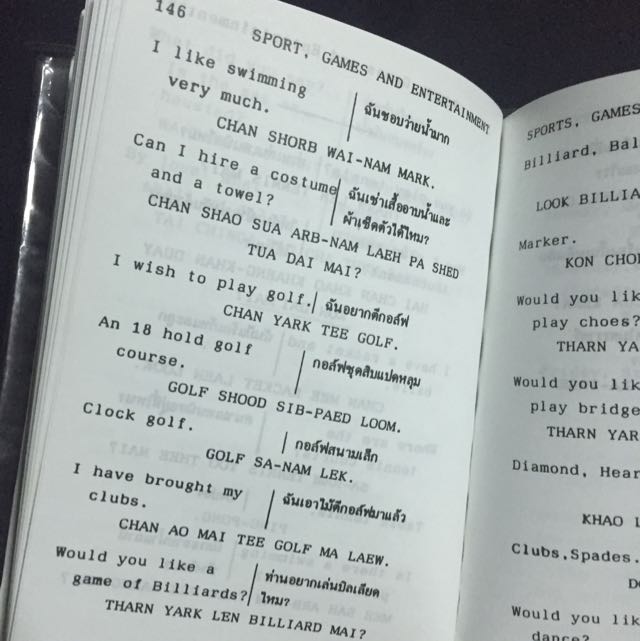 146
SPORT, GAMES AND ENTERTAINMENT
I like swimming
very much.
ฉันชอบว่ายน้ำมาก
CHAN SHORB WAI-NAM MARK.
Can I hire a costume
and a towel?
ฉันเช่าเสื้ออาบน้ำและ
ผ้าเช็ดตัวได้ไหม?
CHAN SHAO SUA ARB-NAM LAEH PA SHED
TUA DAI MAI?
I wish to play golf.
ฉันอยากตีกอล์ฟ
CHAN YARK TEE GOLF.
An 18 hold golf
course.
กอล์ฟชุดสิบแปดหลุม
GOLF SHOOD SIB-PAED LOOM.
Clock golf.
กอล์ฟสนามเล็ก
GOLF SA-NAM LEK.
I have brought my
clubs.
ฉันเอาไม้ตีกอล์ฟมาแล้ว
CHAN AO MAI TEE GOLF MA LAEW.
Would you like a
game of Billiards?
ท่านอยากเล่นบิลเลียด
ไหม?
THARN YARK LEN BILLIARD MAI?
SPORTS, GAMES
Billiard,
LOOK
Marker.
KON
Would you
play choes?
THARN
Would you
play bridge
THARN
Diamond,
KHAO
Clubs,Spades.
Would you
dance?